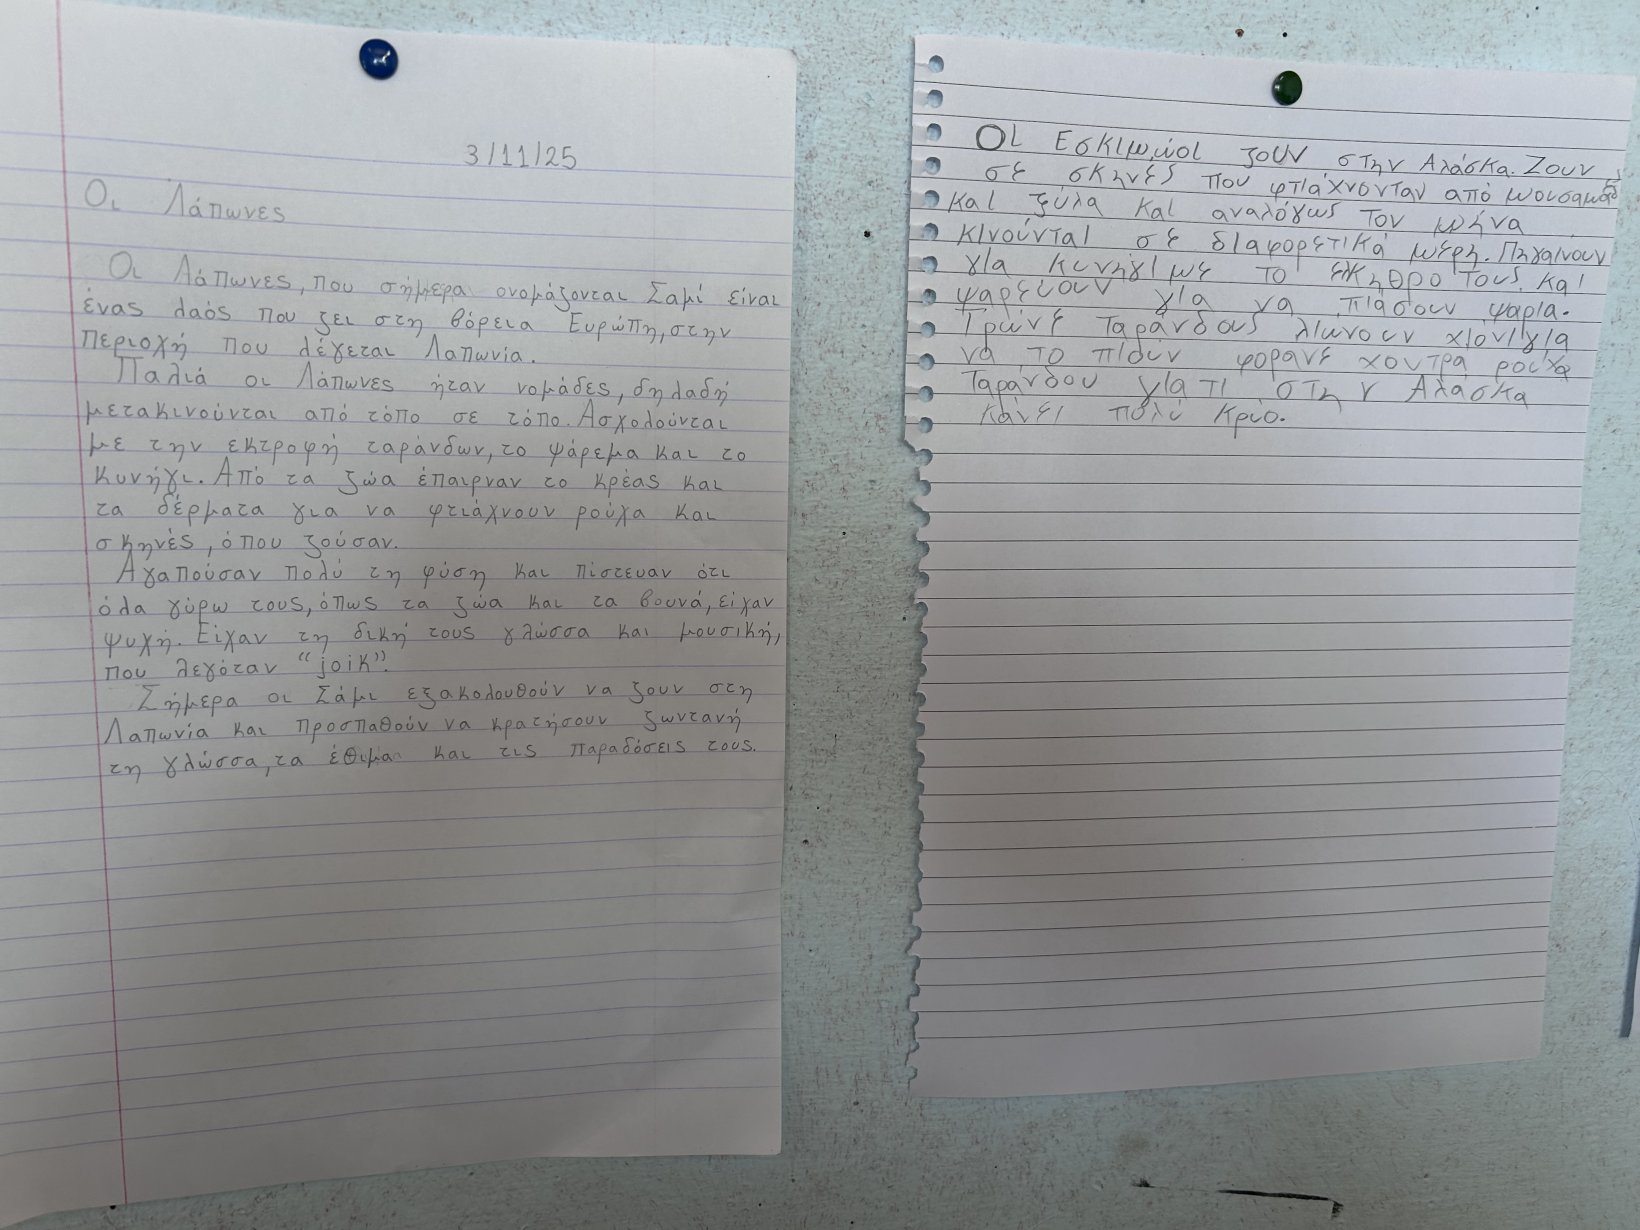 3/11/25
Οι Λάπωνες
Οι Λάπωνες, που σήμερα ονομάζονται Σαμί είναι
ένας λαός που ζει στη βόρεια Ευρώπη, στην
περιοχή που λέγεται Λαπωνία.
Παλιά οι Λάπωνες ήταν νομάδες, δηλαδή
μετακινούνται από τόπο σε τόπο. Ασχολούνται
με την εκτροφή ταράνδων, το ψάρεμα και το
κυνήγι. Από τα ζώα έπαιρναν το κρέας και
τα δέρματα για να φτιάχνουν ρούχα και
σκηνές, όπου ζούσαν.
Αγαπούσαν πολύ τη φύση και πίστευαν ότι
όλα γύρω τους, όπως τα ζώα και τα βουνά, είχαν
ψυχή. Είχαν τη δική τους γλώσσα και μουσική,
που λεγόταν "joik".
Σήμερα οι Σάμι εξακολουθούν να ζουν στη
Λαπωνία και προσπαθούν να κρατήσουν ζωντανή
τη γλώσσα, τα έθιμα και τις παραδόσεις τους.
Οι Εσκιμώοι ζουν στην Αλάσκα. Ζουν
σε σκηνές που φτιάχνονταν από
και ξύλα και αναλόγως τον μήνα
κινούνται σε διαφορετικά μέρη. Πηγαίνουν
για κυνήγι με το έλκηθρο τους. και
ψαρεύουν για να πιάσουν ψάρια.
Τρώνε ταράνδους λιώνουν χιόνι για
να το πιούν φοράνε χοντρα ρούχα
ταράνδου γιατι στην Αλασκα
κάνει πολύ κρύο.